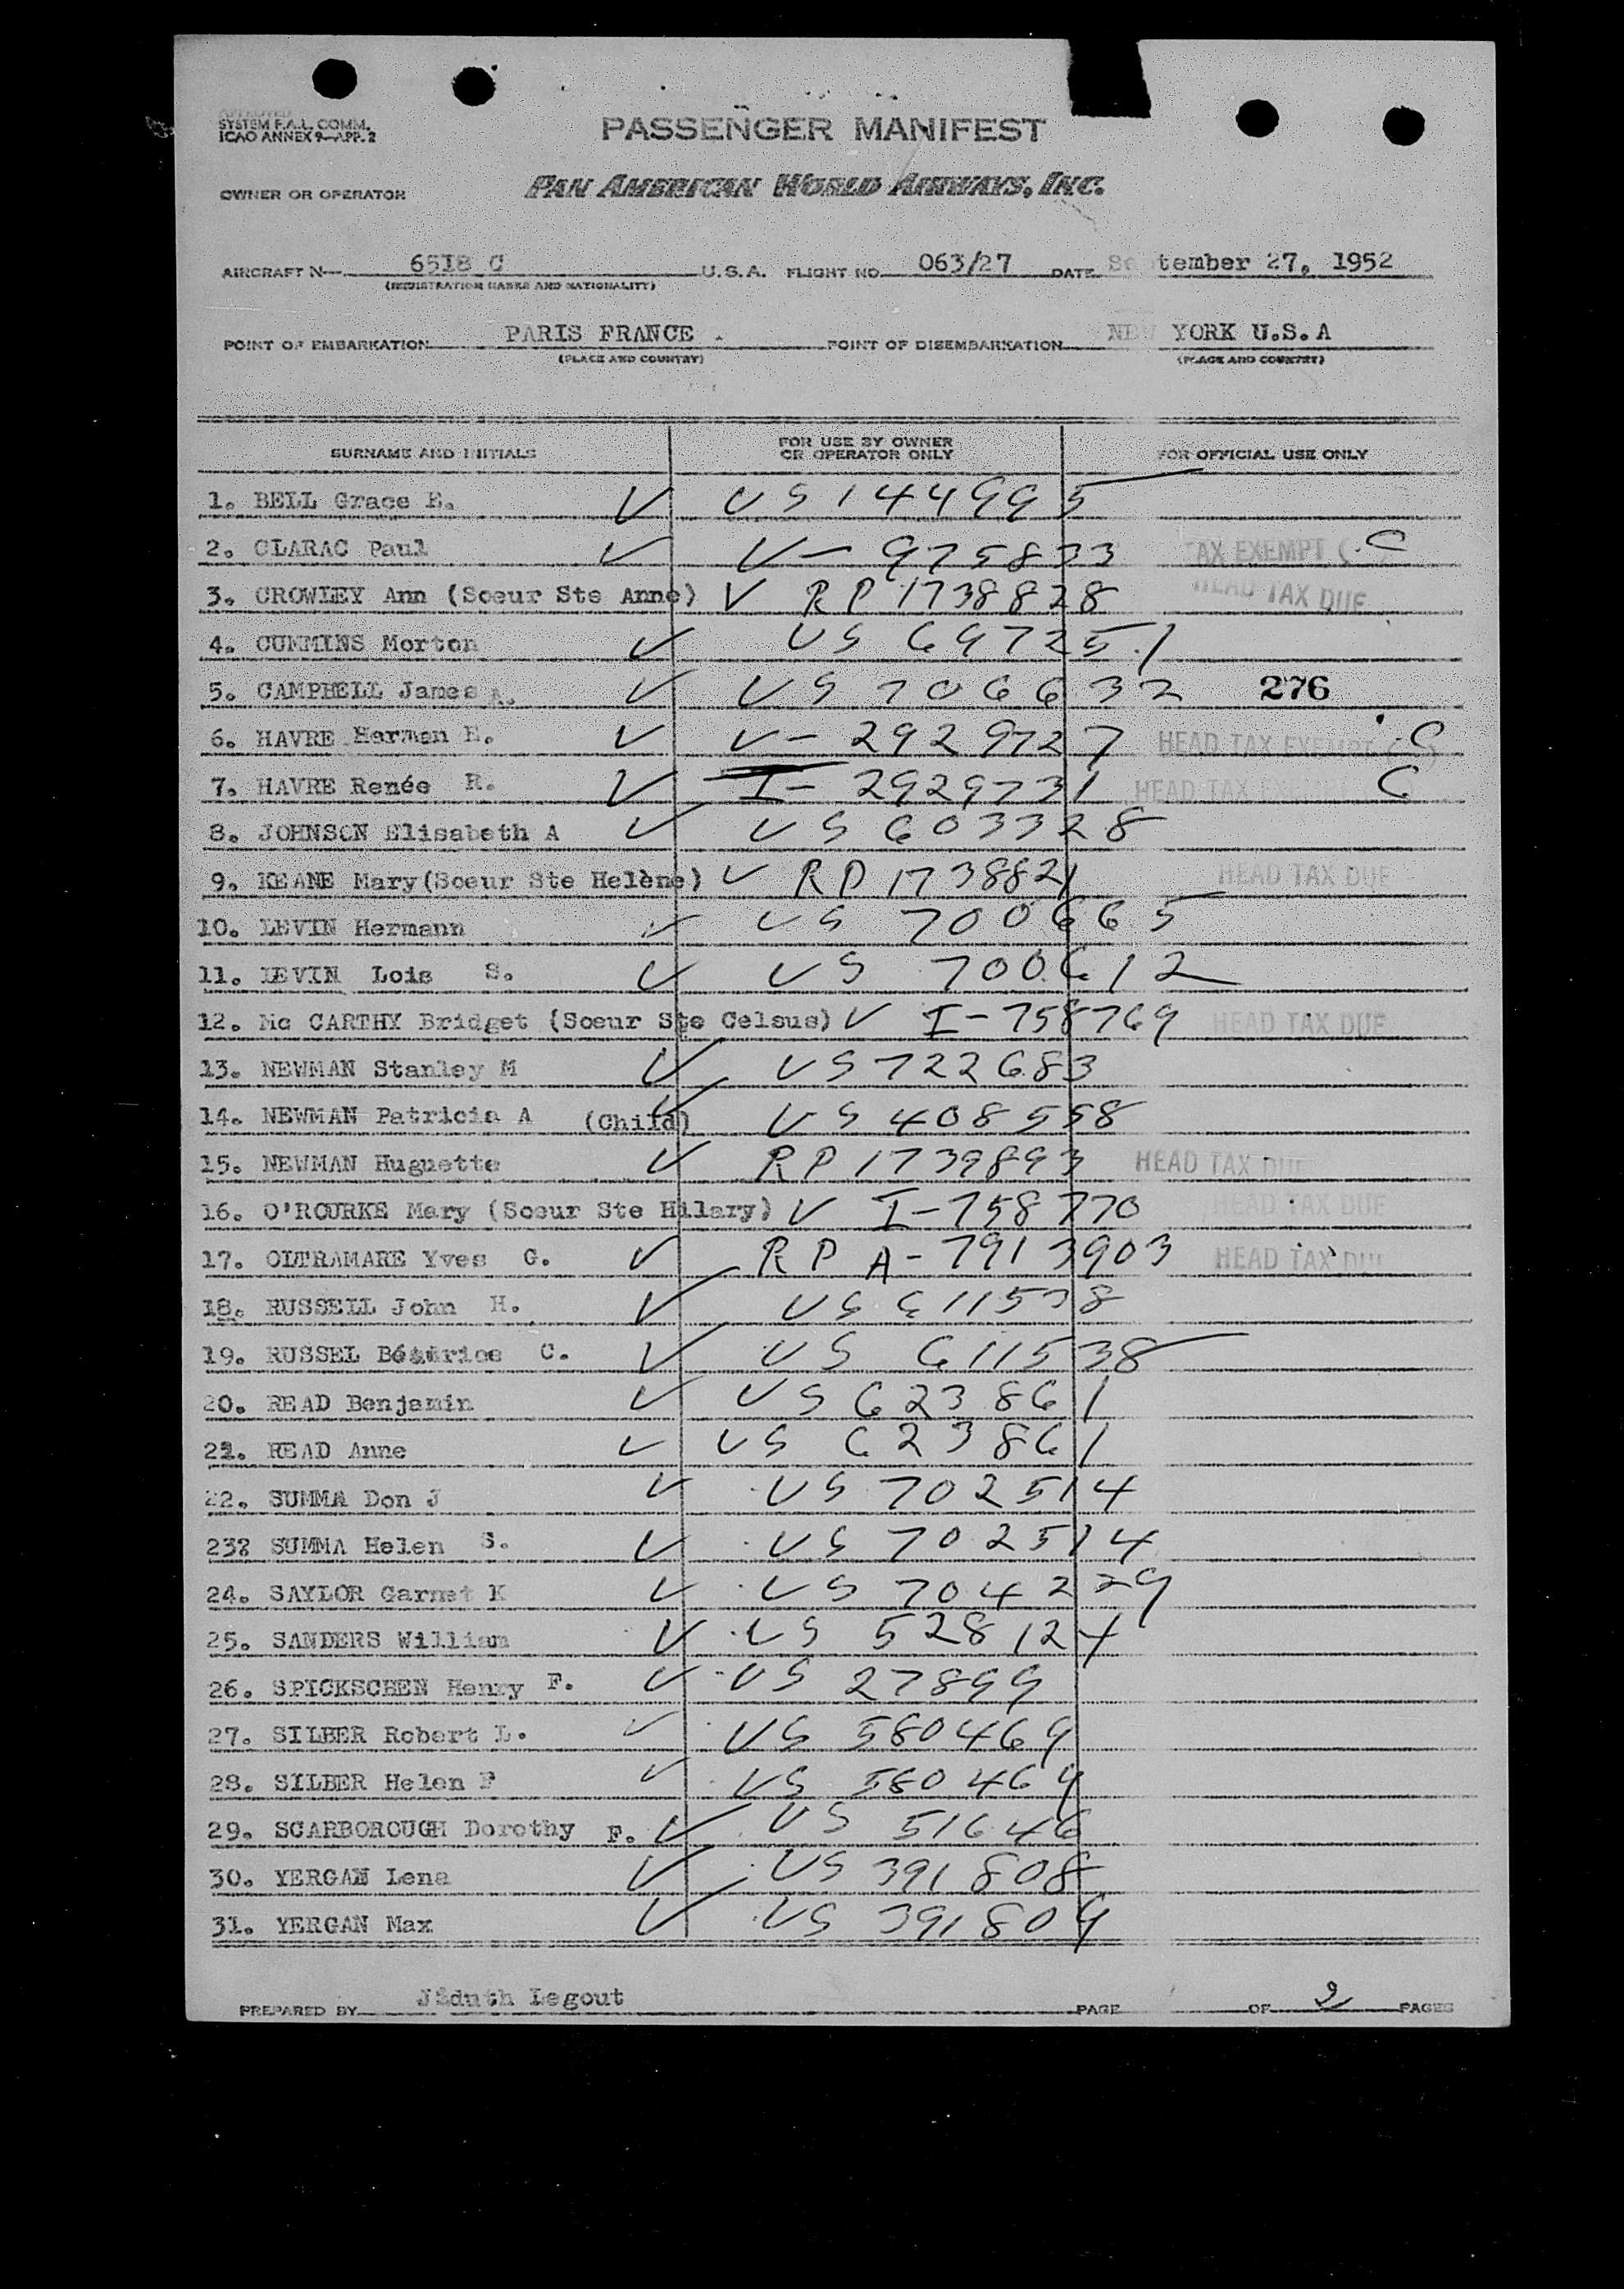 APPROVED
SYSTEM F.A.L. COMM.
ICAO ANNEX 9—APP. 2
PASSENGER MANIFEST
OWNER OR OPERATOR PAN AMERICAN WORLD AIRWAYS, INC.
AIRCRAFT N— 651B C U.S.A. FLIGHT NO. 063/27 DATE September 27, 1952
(REGISTRATION MARKS AND NATIONALITY)
POINT OF EMBARKATION PARIS FRANCE . POINT OF DISEMBARKATION NEW YORK U.S.A
(PLACE AND COUNTRY) (PLACE AND COUNTRY)
SURNAME AND INITIALS FOR USE BY OWNER OR OPERATOR ONLY FOR OFFICIAL USE ONLY
1. BELL Grace E. V US 1449995
2. CLARAC Paul V V- 975833 TAX EXEMPT ( C
3. CROWLEY Ann (Soeur Ste Anne) V RP 1738828 HEAD TAX DUE
4. CUMMINS Morton V US 697251
5. CAMPBELL James A. V US 706632 276
6. HAVRE Herman E. V V- 2929727 HEAD TAX EXEMPT ( C )
7. HAVRE Renée R. V I- 2929731 HEAD TAX EXEMPT C
8. JOHNSON Elisabeth A V US 603328
9. KEANE Mary(Soeur Ste Helène) V RP 1738821 HEAD TAX DUE
10. LEVIN Hermann V US 700665
11. LEVIN Lois S. V US 700612
12. Mc CARTHY Bridget (Soeur Ste Celsus) V I-758769 HEAD TAX DUE
13. NEWMAN Stanley M V US 722683
14. NEWMAN Patricia A (Child) V US 408558
15. NEWMAN Huguette V RP 1739893 HEAD TAX DUE
16. O'ROURKE Mary (Soeur Ste Hilary) V I-758770 HEAD TAX DUE
17. OLTRAMARE Yves G. V RP A-7913903 HEAD TAX DUE
18. RUSSELL John H. V US 611538
19. RUSSEL Béatrice C. V US 611538
20. READ Benjamin V US 623861
21. READ Anne V US 623861
22. SUMMA Don J V US 702514
238 SUMMA Helen S. V US 702514
24. SAYLOR Garnet K V US 704229
25. SANDERS William V US 528124
26. SPICKSCHEN Henry F. V US 27899
27. SILBER Robert L. V US 580469
28. SILBER Helen F V US 580469
29. SCARBOROUGH Dorothy F. V US 51646
30. YERGAN Lena V US 391808
31. YERGAN Max V US 391809
PREPARED BY Jüduth Legout PAGE OF 2 PAGES